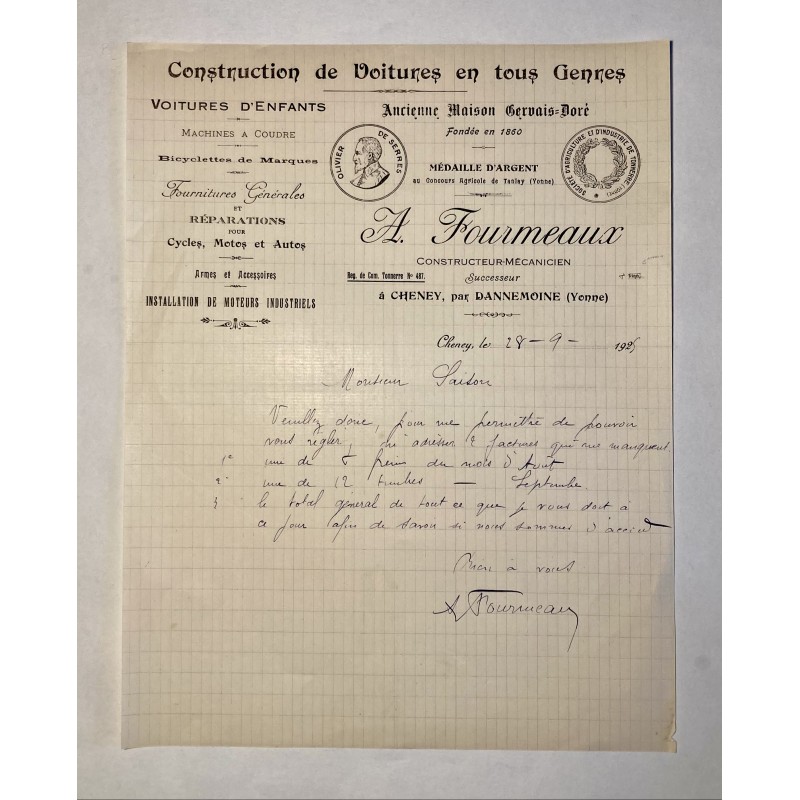 Construction de Voitures en tous Genres
VOITURES D'ENFANTS
MACHINES A COUDRE
Bicyclettes de Marques
Fournitures Générales
ET
RÉPARATIONS
POUR
Cycles, Motos et Autos
Armes et Accessoires
INSTALLATION DE MOTEURS INDUSTRIELS
Ancienne Maison Gervais-Doré
Fondée en 1860
OLIVIER DE SERRES
MÉDAILLE D'ARGENT
au Concours Agricole de Tanlay (Yonne)
SOCIÉTÉ D'AGRICULTURE ET D'INDUSTRIE DE TONNERRE (YONNE)
A. Fourmeaux
CONSTRUCTEUR-MÉCANICIEN
Reg. de Com. Tonnerre No 467.
Successeur
à CHENEY, par DANNEMOINE (Yonne)
Cheney, le 28 - 9 - 1925
Monsieur Saison
Veuillez donc, pour me permettre de pouvoir
vous régler, m'adresser 2 factures qui me manquent
1e une de freins du mois d'Août
2e une de 12 timbres — Septembre
3 le total général de tout ce que je vous doit à
ce jour afin de savoir si nous sommes d'accord
Bien à vous
A Fourmeaux